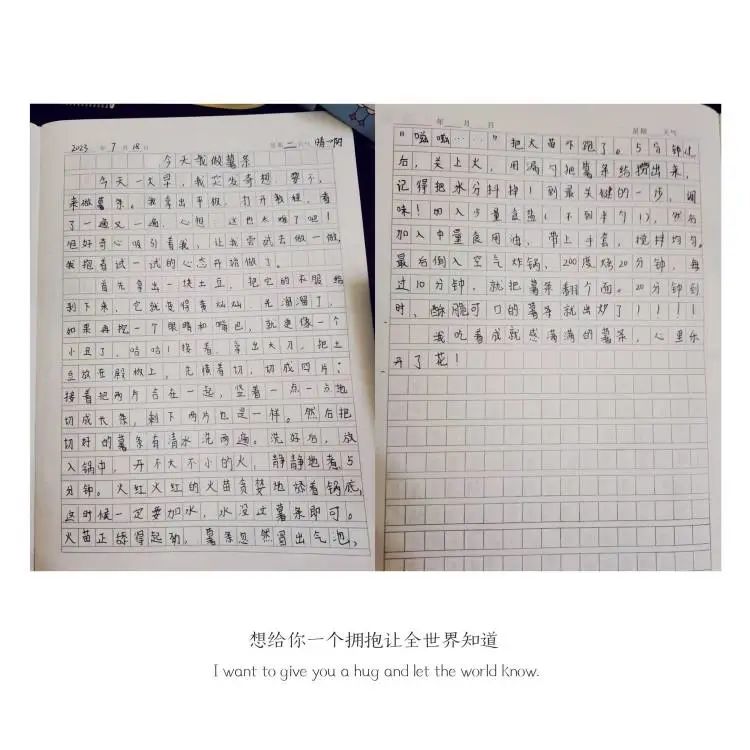 2023 年 7 月 18 日 星期 二 天气 晴→阴
今天我做薯条
今天一大早，我突发奇想，要不，
来做薯条。我拿出平板，打开教程，看
了一遍又一遍，心想，这也太难了吧！
但好奇心吸引着我，让我尝试去做一做，
我抱着试一试的心态开始做了。
首先拿出一块土豆，把它的衣服给
剥下来，它就变得黄灿灿，光溜溜了，
如果再挖一个眼睛和嘴巴，就更像一个
小丑了，哈哈！接着，拿出大刀，把土
豆放在砧板上，先横着切，切成四片；
接着把两片合在一起，竖着一点一点地
切成长条，剩下两片也是一样。然后把
切好的薯条有清水洗两遍。洗好后，放
入锅中，开不大不小的火，静静地煮5
分钟。火红火红的火苗贪婪地舔着锅底，
这时候一定要加水，水没过薯条即可。
火苗正舔得起劲，薯条忽然冒出气泡，
年 月 日 星期 天气
“嗞嗞……”把火苗吓跑了。5分钟过
后，关上火，用漏勺把薯条给捞出来，
记得把水分抖掉！到最关键的一步，调
味！加入少量食盐（不到半勺），然后
加入中量食用油，带上手套，搅拌均匀。
最后倒入空气炸锅，200度烤20分钟，每
过10分钟，就把薯条翻个面。20分钟到
时，酥脆可口的薯条就出炉了！！！！
我吃着成就感满满的薯条，心里乐
开了花！
想给你一个拥抱让全世界知道
I want to give you a hug and let the world know.